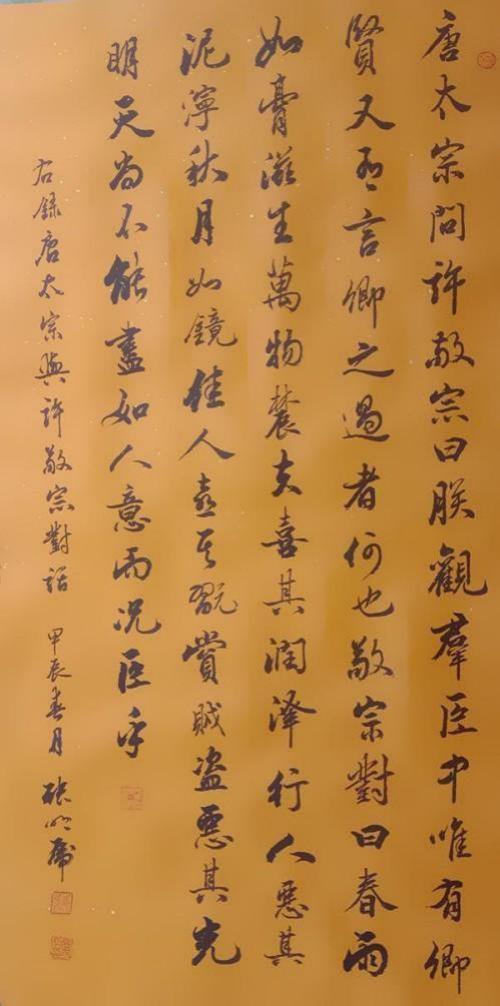 唐太宗問許敬宗曰朕觀羣臣中唯有卿
賢又有言卿之過者何也敬宗對曰春雨
如膏滋生萬物農夫喜其潤澤行人惡其
泥濘秋月如鏡佳人喜其翫賞賊盜惡其光
明天尚不能盡如人意而況臣乎
右錄唐太宗與許敬宗對話 甲辰春月 張